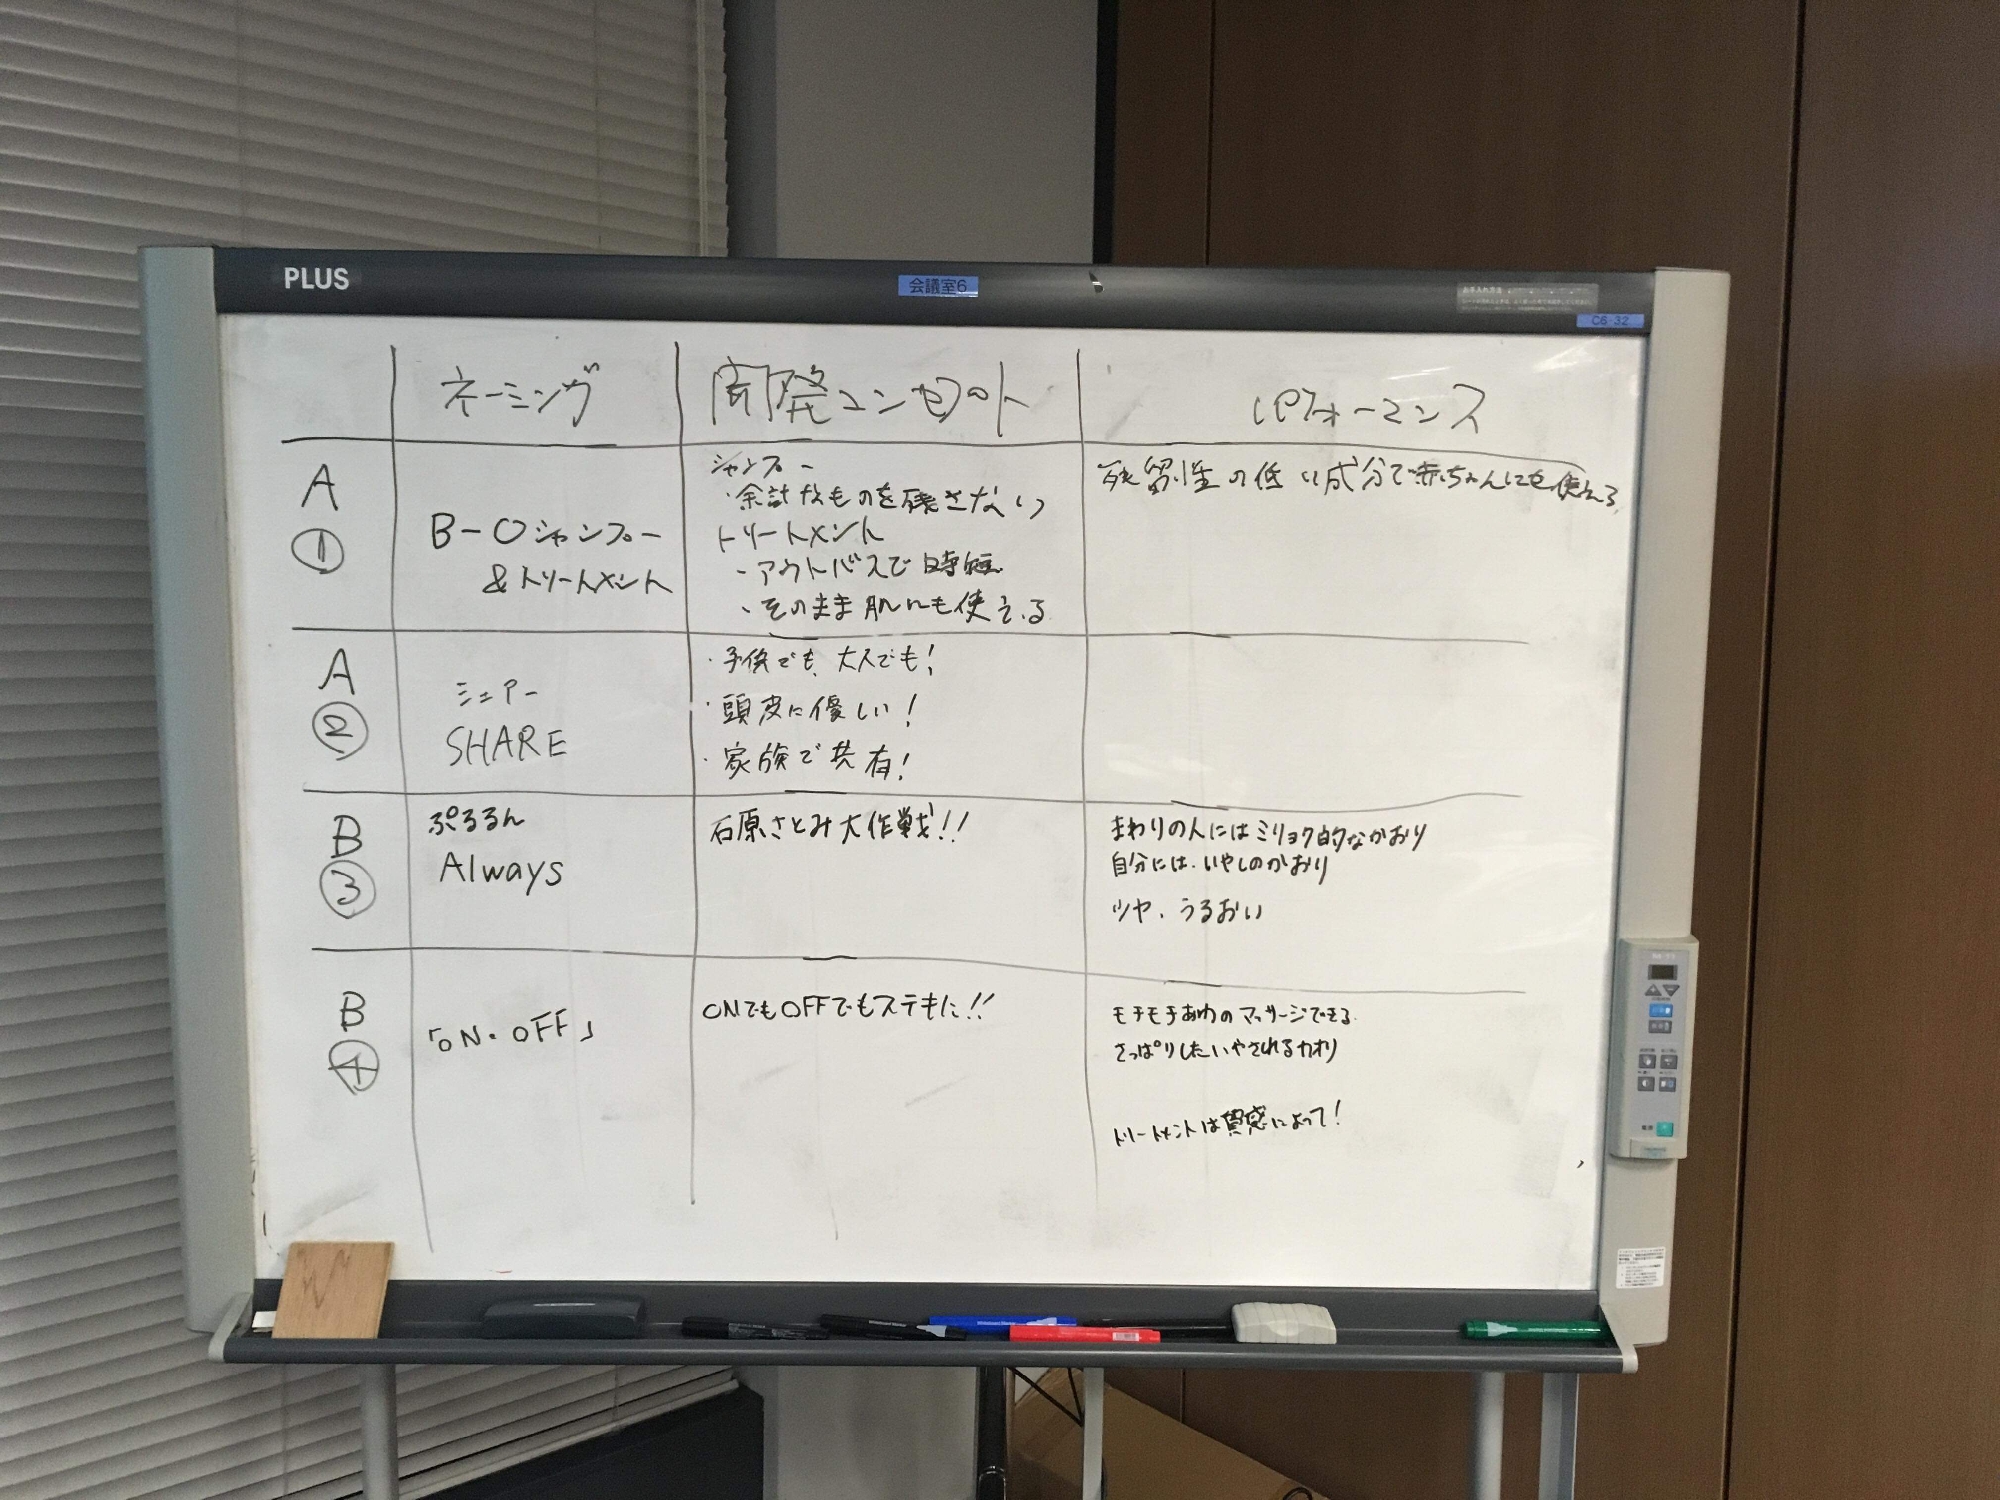 PLUS
会議室6
C6-32
ネーミング
開発コンセプト
パフォーマンス
A
①
B-Oシャンプー
&トリートメント
シャンプー
・余計なものを残さない
トリートメント
・アウトバスで時短
・そのまま肌にも使える
残留性の低い成分で赤ちゃんにも使える
A
②
シェアー
SHARE
・子供でも、大人でも!
・頭皮に優しい!
・家族で共有!
B
③
ぷるるん
Always
石原さとみ大作戦!!
まわりの人にはミリョク的なかおり
自分には、いやしのかおり
ツヤ、うるおい
B
④
「ON・OFF」
ONでもOFFでもステキに!!
モチモチあわのマッサージできる
さっぱりしたいやされるカオリ
トリートメントは質感によって!